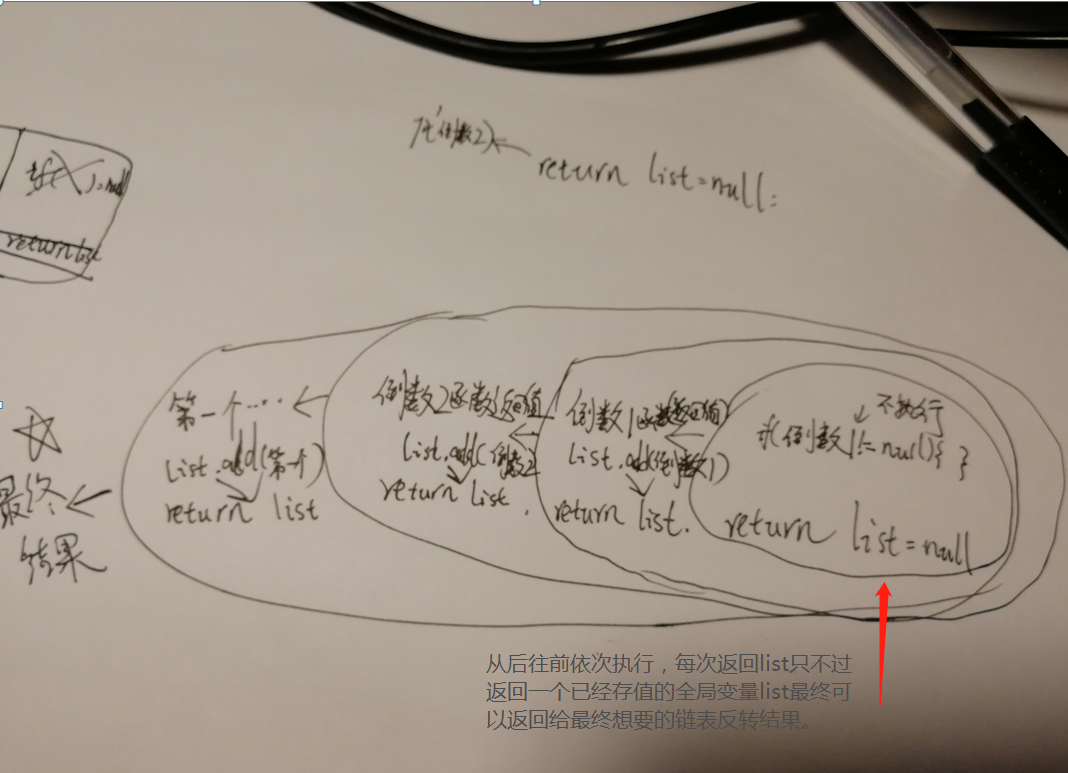 倒数2)
return list=null;
if( )=null
return list
第一个····
list.add(第一个)
return list
倒数2函数返回值
list.add(倒数2
return list,
倒数1函数(返回值)
list.add(倒数1)
return list.
不执行
if(倒数1!=null){ }
return list=null
最终
结果
从后往前依次执行，每次返回list只不过
返回一个已经存值的全局变量list最终可
以返回给最终想要的链表反转结果。